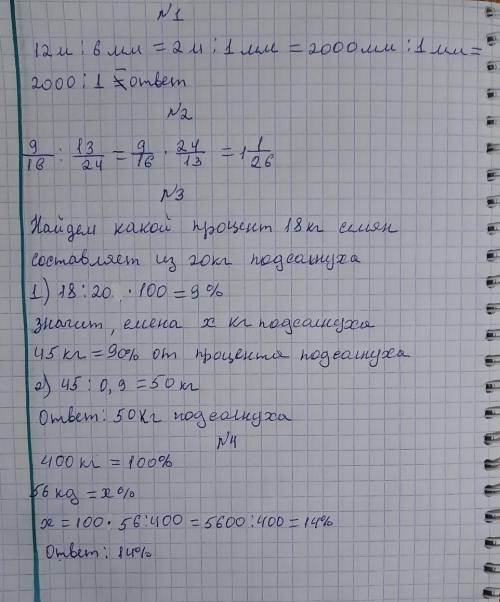 №1
12м : 6мм = 2м : 1мм = 2000мм : 1мм =
2000 : 1 = ответ
№2
9/16 : 13/24 = 9/16 · 24/13 = 1 1/26
№3
Найдем какой процент 18кг семян
составляет из 20кг подсолнуха
1) 18 : 20 · 100 = 9%
значит, семена х кг подсолнуха
45 кг = 90% от процента подсолнуха
2) 45 : 0,9 = 50 кг
Ответ: 50кг подсолнуха
№4
400 кг = 100%
56 kg = х%
х = 100 · 56 : 400 = 5600 : 400 = 14%
Ответ: 14%